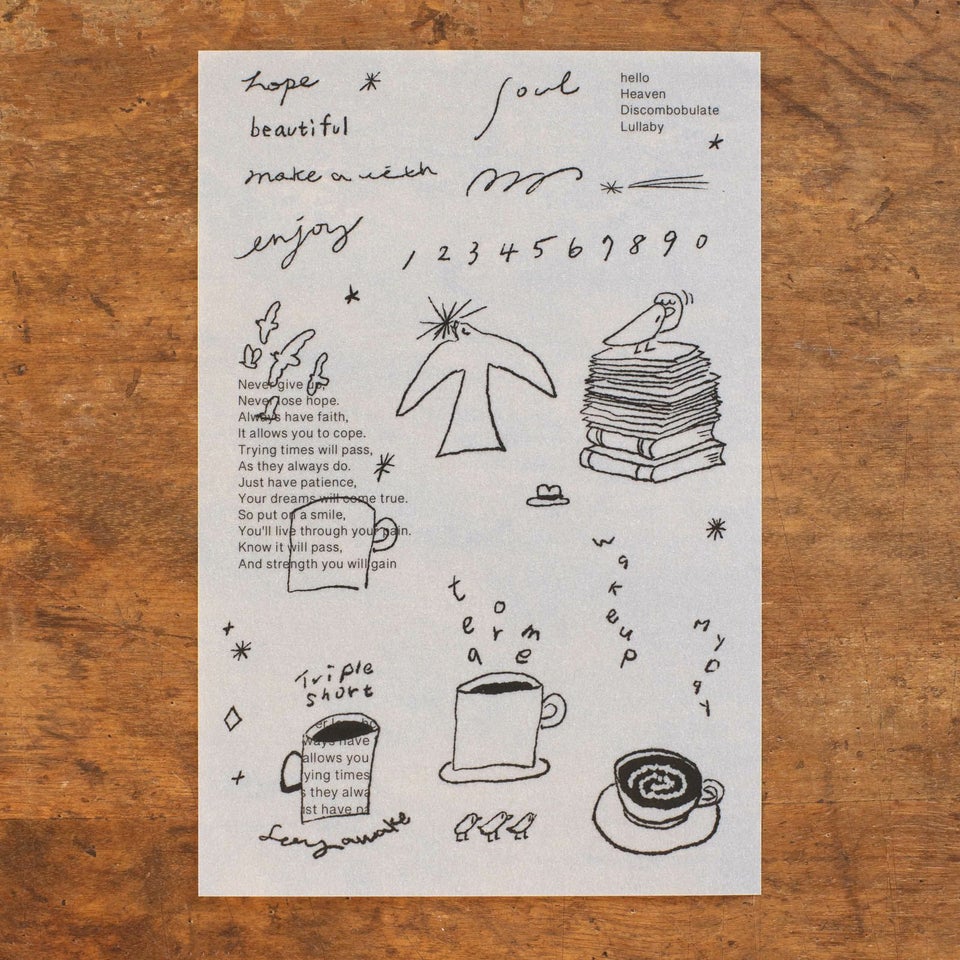 hope
beautiful
make a wish
enjoy
soul
hello
Heaven
Discombobulate
Lullaby
1 2 3 4 5 6 7 8 9 0
Never give up,
Never lose hope.
Always have faith,
It allows you to cope.
Trying times will pass,
As they always do.
Just have patience,
Your dreams will come true.
So put on a smile,
You'll live through your pain.
Know it will pass,
And strength you will gain
wake up
My Day
Triple
short
ways have
allows you
ying times
they alwa
st have pa
awake